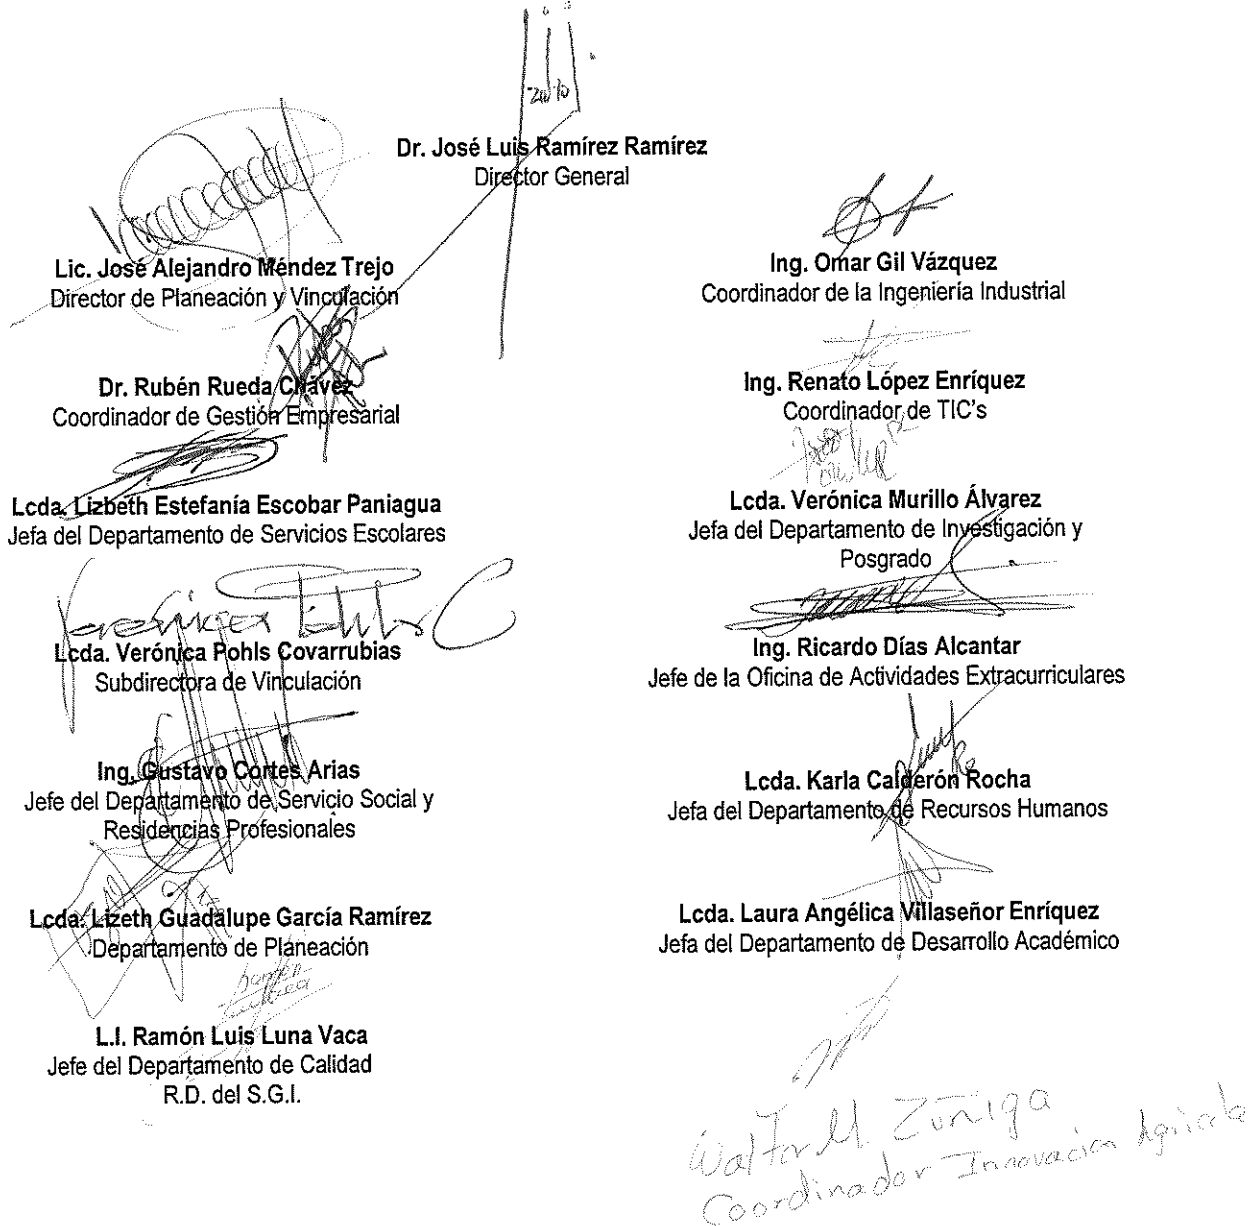 Dr. José Luis Ramírez Ramírez
Director General
Lic. José Alejandro Méndez Trejo
Director de Planeación y Vinculación
Dr. Rubén Rueda Chávez
Coordinador de Gestión Empresarial
Lcda. Lizbeth Estefanía Escobar Paniagua
Jefa del Departamento de Servicios Escolares
Lcda. Verónica Pohls Covarrubias
Subdirectora de Vinculación
Ing. Gustavo Cortes Arias
Jefe del Departamento de Servicio Social y
Residencias Profesionales
Lcda. Lizeth Guadalupe García Ramírez
Departamento de Planeación
L.I. Ramón Luis Luna Vaca
Jefe del Departamento de Calidad
R.D. del S.G.I.
Ing. Omar Gil Vázquez
Coordinador de la Ingeniería Industrial
Ing. Renato López Enríquez
Coordinador de TIC's
Lcda. Verónica Murillo Álvarez
Jefa del Departamento de Investigación y
Posgrado
Ing. Ricardo Días Alcantar
Jefe de la Oficina de Actividades Extracurriculares
Lcda. Karla Calderón Rocha
Jefa del Departamento de Recursos Humanos
Lcda. Laura Angélica Villaseñor Enríquez
Jefa del Departamento de Desarrollo Académico
Walter M. Zuñiga
Coordinador Innovación Agricola